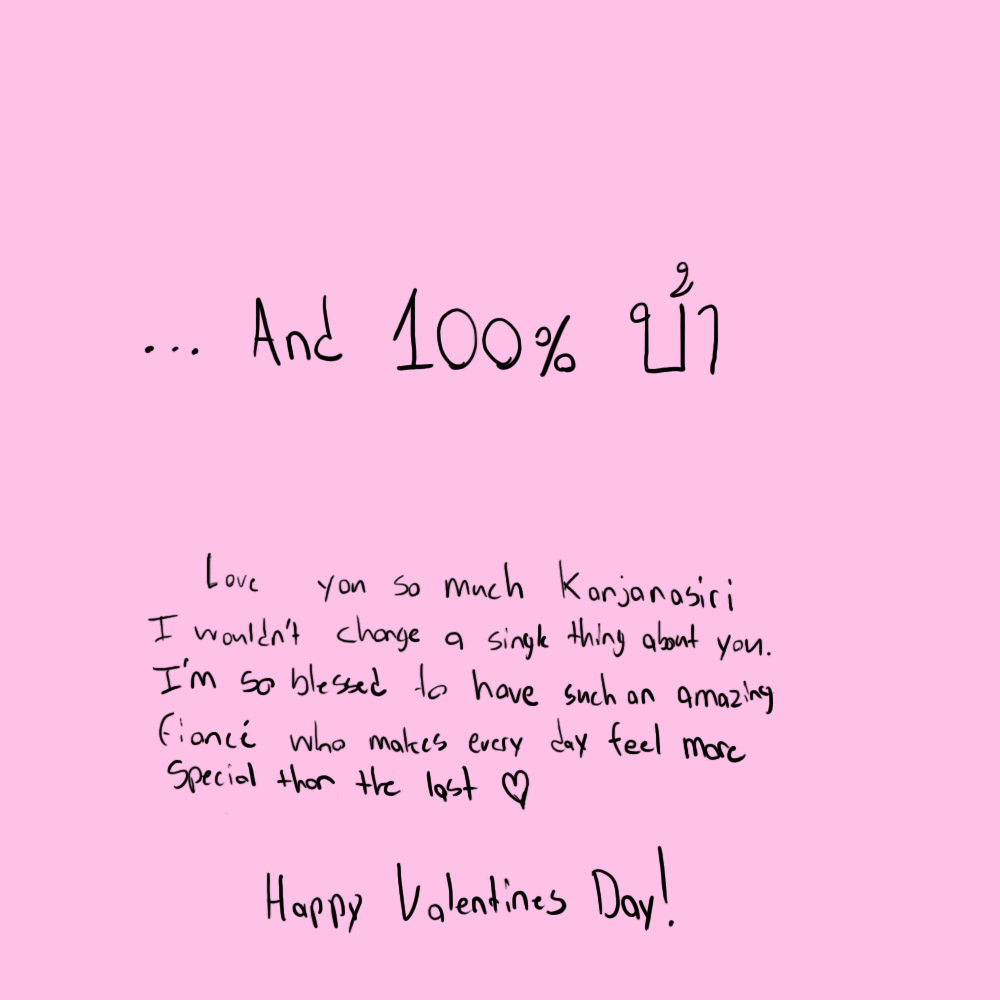 ... And 100% บ้า
Love you so much Kanjanasiri
I wouldn't change a single thing about you.
I'm so blessed to have such an amazing
fiancé who makes every day feel more
special than the last ♡
Happy Valentines Day!